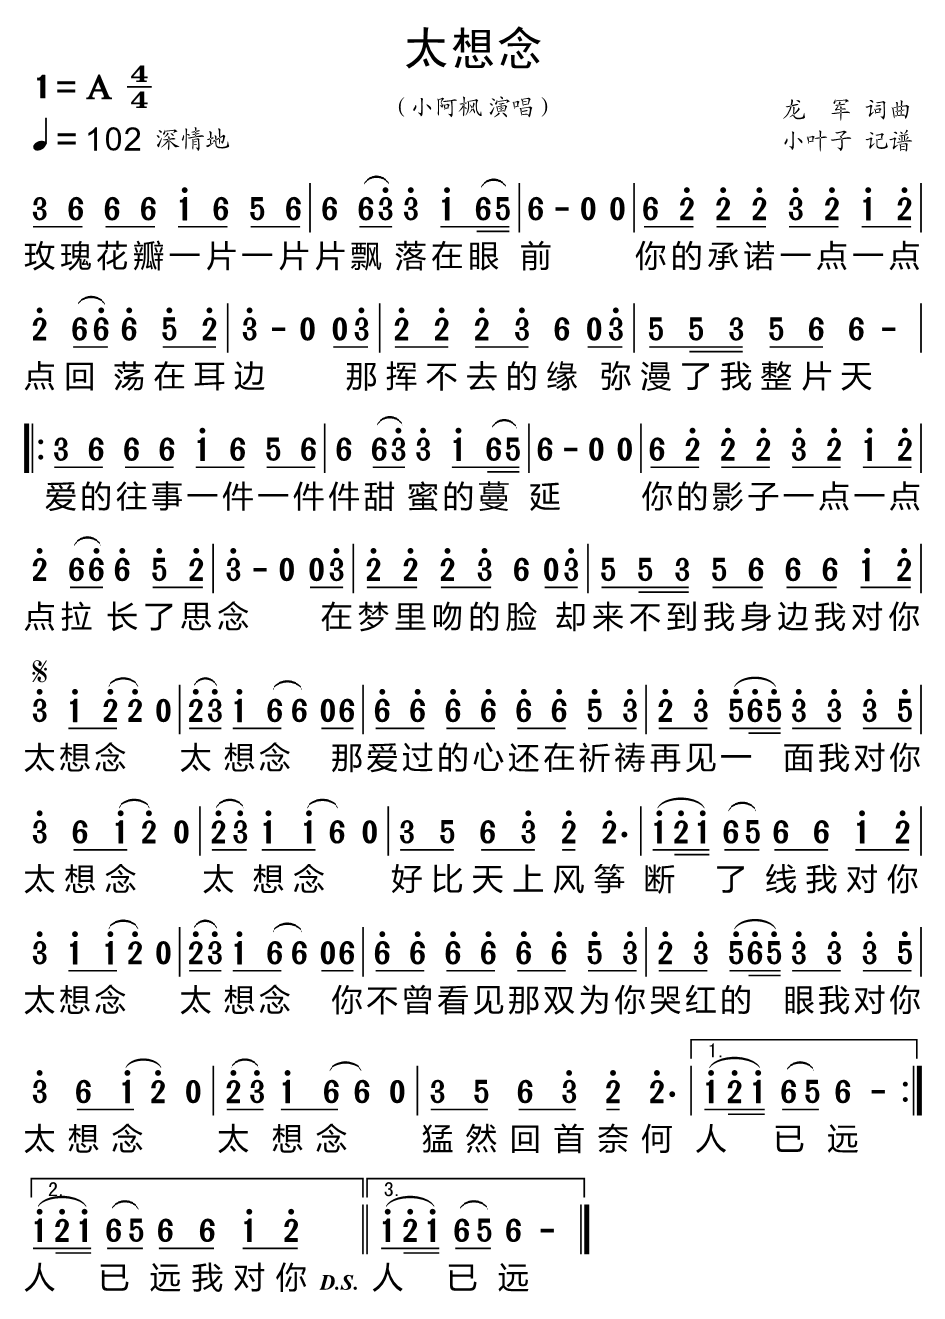 太想念
1=A 4/4
(小阿枫 演唱)
龙 军 词曲
♩=102 深情地
小叶子 记谱
3 6 6 6 1̇ 6 5 6 | 6 6 3̇ 3̇ 1̇ 6 5 | 6 - 0 0 | 6 2̇ 2̇ 2̇ 3̇ 2̇ 1̇ 2̇ |
玫瑰花瓣一片一片片飘 落在眼 前 你的承诺一点一点
2̇ 6 6̇ 6̇ 5̇ 2̇ | 3̇ - 0 0 3̇ | 2̇ 2̇ 2̇ 3̇ 6 0 3̇ | 5 5 3 5 6 6 - |
点回 荡在耳边 那挥不去的缘 弥漫了我整片天
‖: 3 6 6 6 1̇ 6 5 6 | 6 6 3̇ 3̇ 1̇ 6 5 | 6 - 0 0 | 6 2̇ 2̇ 2̇ 3̇ 2̇ 1̇ 2̇ |
爱的往事一件一件件甜 蜜的蔓 延 你的影子一点一点
2̇ 6 6̇ 6̇ 5̇ 2̇ | 3̇ - 0 0 3̇ | 2̇ 2̇ 2̇ 3̇ 6 0 3̇ | 5 5 3 5 6 6 6 1̇ 2̇ |
点拉 长了思念 在梦里吻的脸 却来不到我身边我对你
𝄋
3̇ 1̇ 2̇ 2̇ 0 | 2̇ 3̇ 1̇ 6 6 0 6 | 6̇ 6̇ 6̇ 6̇ 6̇ 6̇ 5̇ 3̇ | 2̇ 3̇ 5̇ 6̇ 5̇ 3̇ 3̇ 3̇ 5̇ |
太想念 太 想念 那爱过的心还在祈祷再见一 面我对你
3̇ 6 1̇ 2̇ 0 | 2̇ 3̇ 1̇ 1̇ 6 0 | 3 5 6 3̇ 2̇ 2̇· | 1̇ 2̇ 1̇ 6 5 6 6 1̇ 2̇ |
太想念 太 想念 好比天上风筝 断 了 线我对你
3̇ 1̇ 1̇ 2̇ 0 | 2̇ 3̇ 1̇ 6 6 0 6 | 6̇ 6̇ 6̇ 6̇ 6̇ 6̇ 5̇ 3̇ | 2̇ 3̇ 5̇ 6̇ 5̇ 3̇ 3̇ 3̇ 5̇ |
太想念 太 想念 你不曾看见那双为你哭红的 眼我对你
1.
3̇ 6 1̇ 2̇ 0 | 2̇ 3̇ 1̇ 6 6 0 | 3 5 6 3̇ 2̇ 2̇· | 1̇ 2̇ 1̇ 6 5 6 - :‖
太想念 太 想念 猛然回首奈何 人 已 远
2. 3.
1̇ 2̇ 1̇ 6 5 6 6 1̇ 2̇ ‖ 1̇ 2̇ 1̇ 6 5 6 - ‖
人 已 远我对你 D.S. 人 已 远